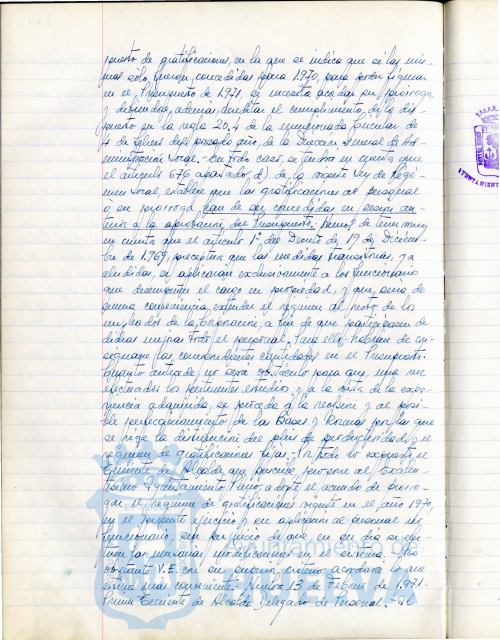 puesto de gratificaciones, en la que se indica que si las mis-
mas sólo fueron concedidas para 1970, para poder figurar
en el Presupuesto de 1971, se necesita acordar su prórroga,
y debiendo, además, acreditar el cumplimiento de lo dis-
puesto en la regla 20,4 de la mencionada Circular de
4 de febrero del pasado año, de la Dirección General de Ad-
ministración Local.- En todo caso, se tendrá en cuenta que
el artículo 676 apartado d) de la vigente Ley de Régi-
men Local, establece que las gratificaciones al personal
o su prórroga han de ser concedidas en sesión an-
terior a la aprobación del Presupuesto. Hemos de tener muy
en cuenta que el artículo 1º del Decreto de 19 de Diciem-
bre de 1.969, preceptúa que las medidas transitorias, ya
aludidas, se aplicarán exclusivamente a los funcionarios
que desempeñen el cargo en propiedad, y que, sería de
suma conveniencia, extender el régimen al resto de los
empleados de la Corporación, a fin de que participasen de
dichas mejoras todo el personal. Para ello, habrán de con-
signarse las correspondientes cantidades en el Presupuesto.
Cuanto antecede, no será obstáculo para que, una vez
efectuados los pertinentes estudios, y a la vista de la expe-
riencia adquirida, se proceda a la revisión y al posi-
ble perfeccionamiento de las Bases y Normas por las que
se rige la distribución del plus de productividad y el
régimen de gratificaciones fijas.- Por todo lo expuesto, el
Teniente de Alcalde que suscribe, propone al Excelen-
tísimo Ayuntamiento Pleno adopte el acuerdo de prorro-
gar el régimen de gratificaciones vigente en el año 1970,
en el presente ejercicio y su aplicación al personal no
funcionario, sin perjuicio de que, en su día se efec-
túen las necesarias modificaciones en el sistema. No
obstante V.E. con su superior criterio, acordará lo que
estime más conveniente. Huelva 13 de Febrero de 1.971.
Primer Teniente de Alcalde Delegado de Personal.-
Ayuntamiento de
HUELVA